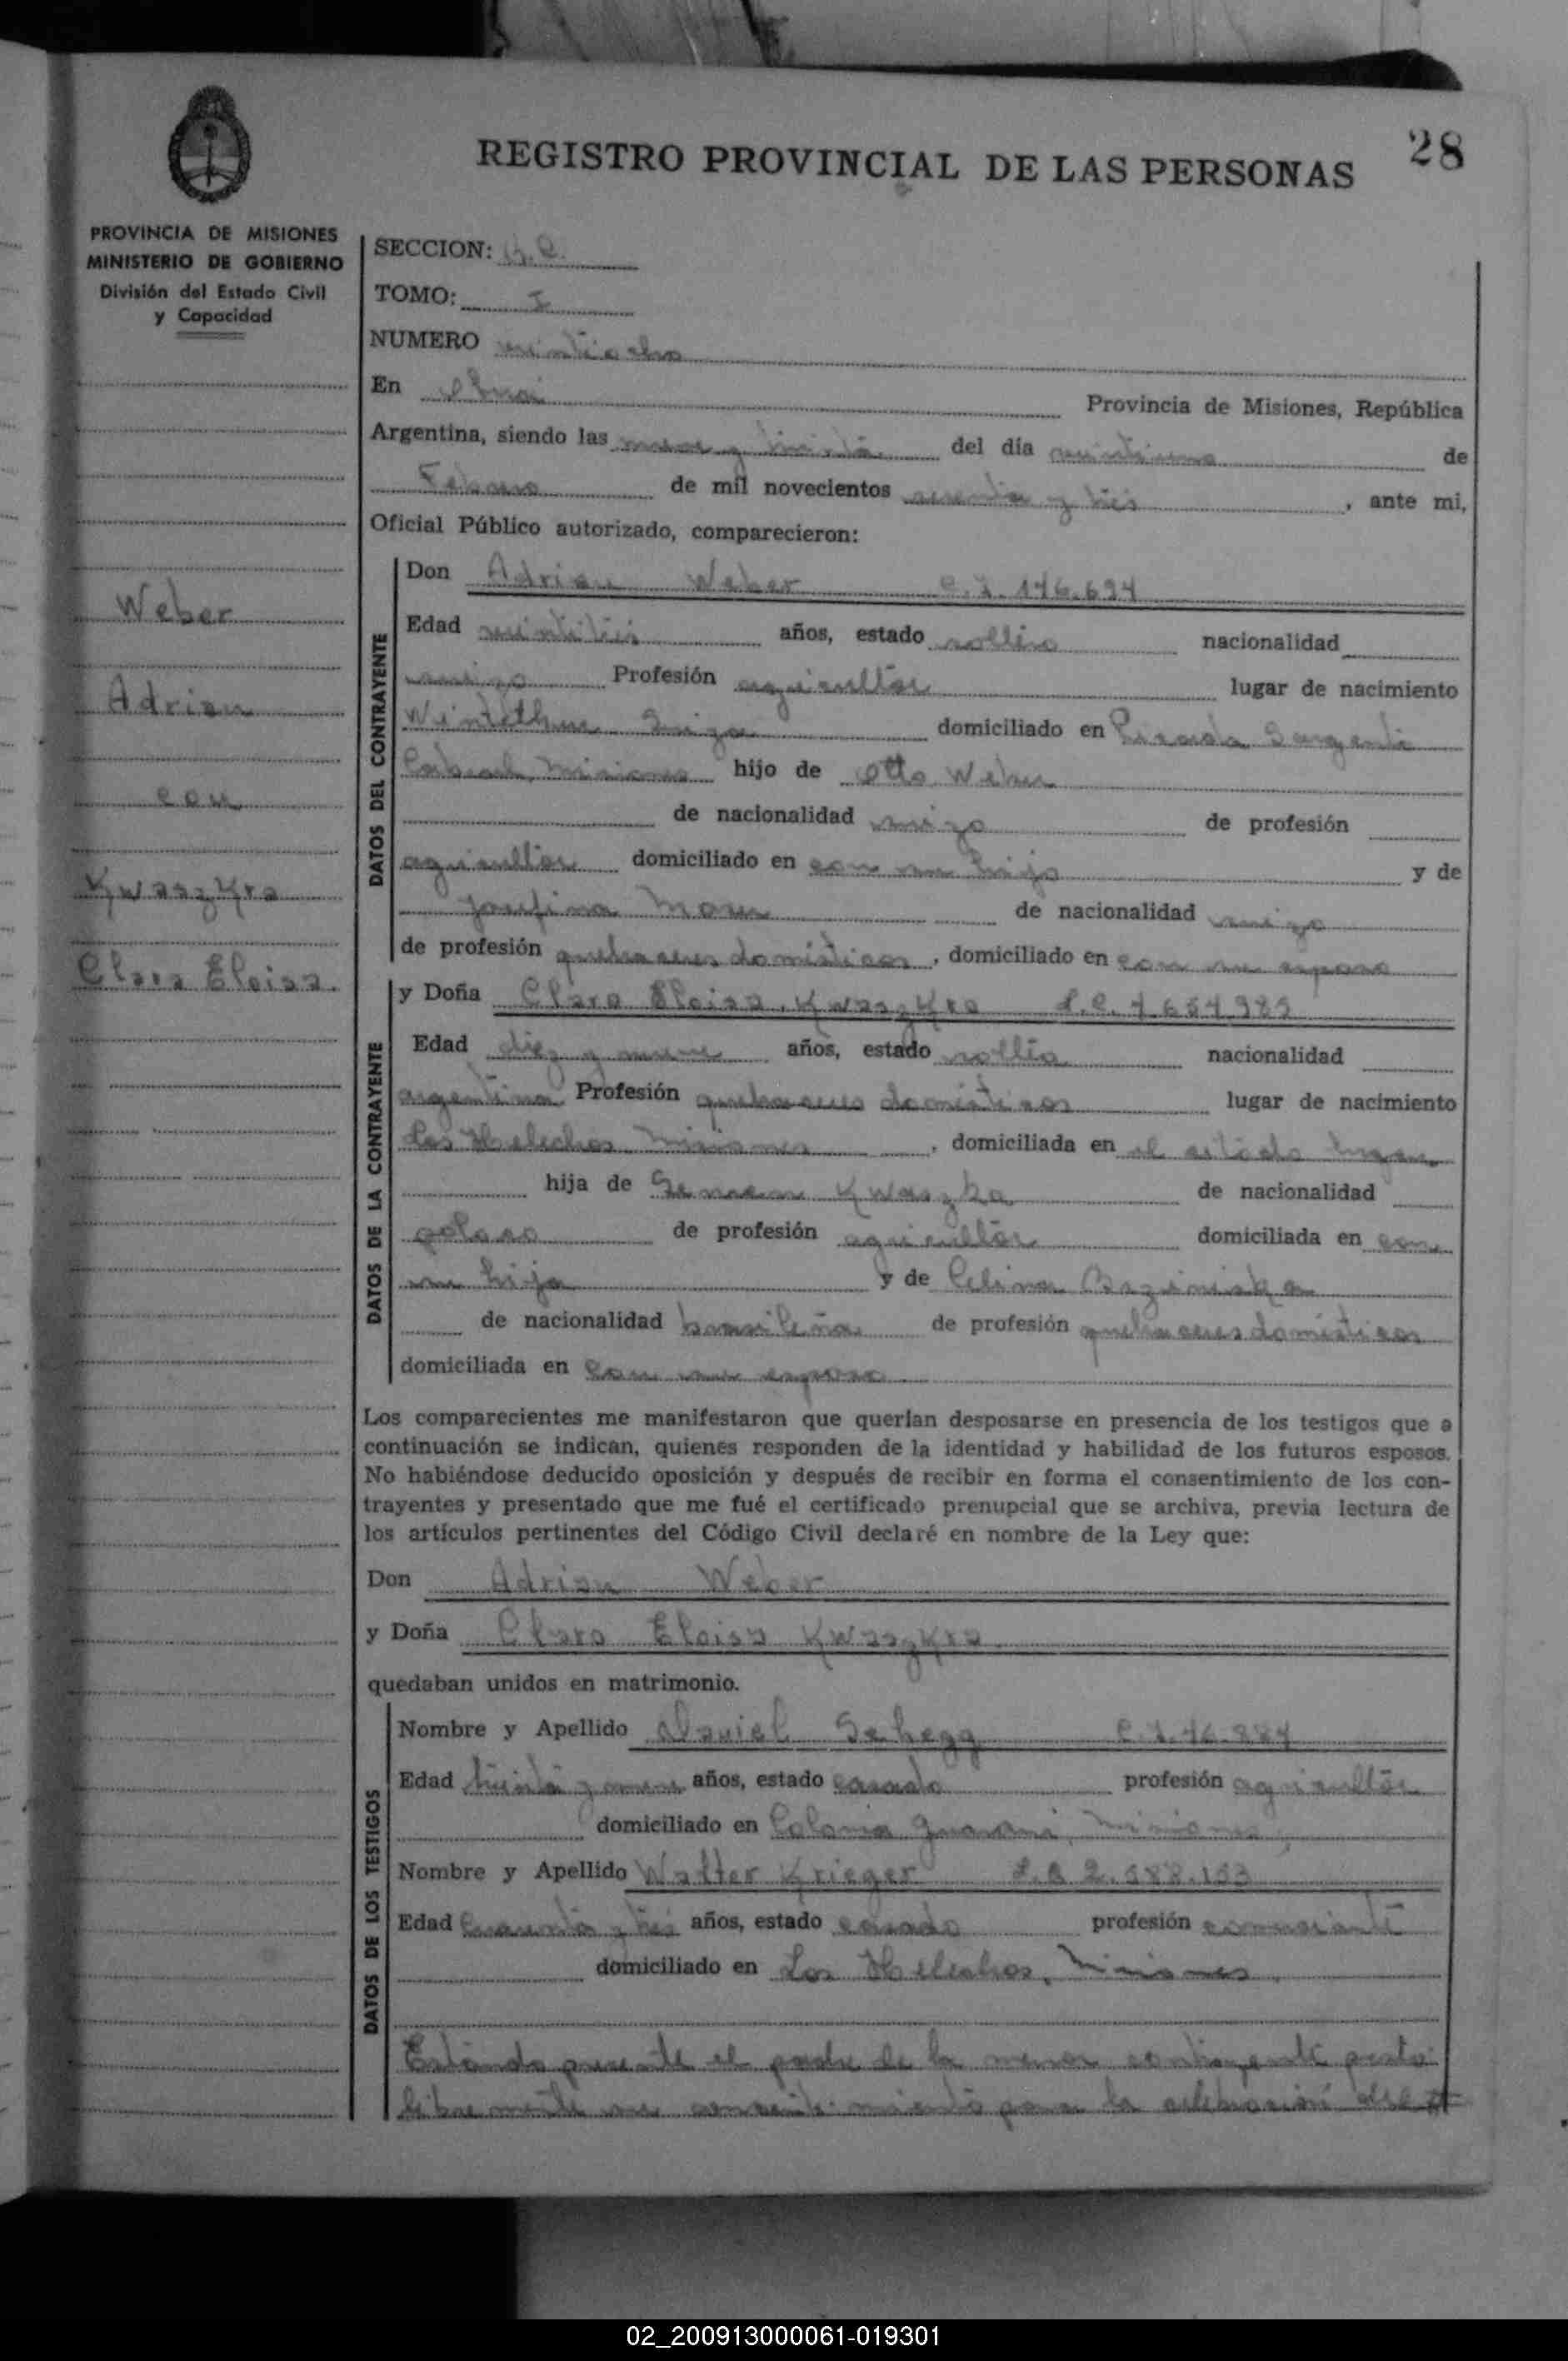 28
REGISTRO PROVINCIAL DE LAS PERSONAS
PROVINCIA DE MISIONES
MINISTERIO DE GOBIERNO
División del Estado Civil
y Capacidad
Weber
Adrian
con
Clara Eloisa.
SECCION:
TOMO: I
NUMERO veintiocho
En Oberá Provincia de Misiones, República
Argentina, siendo las nueve y treinta del día veintiuno de
Febrero de mil novecientos sesenta y tres, ante mi,
Oficial Público autorizado, comparecieron:
DATOS DEL CONTRAYENTE
Don Adrian Weber C.I. 146.694
Edad veintitres años, estado soltero nacionalidad
suizo Profesión agricultor lugar de nacimiento
Suiza domiciliado en Picada Sargento
Cabral, Misiones hijo de Otto Weber
de nacionalidad suizo de profesión
agricultor domiciliado en con su hijo y de
Josefina de nacionalidad suiza
de profesión quehaceres domésticos, domiciliado en con su esposo
DATOS DE LA CONTRAYENTE
y Doña Clara Eloisa L.C.
Edad diez y nueve años, estado soltera nacionalidad
argentina Profesión quehaceres domésticos lugar de nacimiento
Los Helechos, Misiones, domiciliada en el citado lugar
hija de de nacionalidad
polaco de profesión agricultor domiciliada en con
su hija y de Celina
de nacionalidad brasileña de profesión quehaceres domésticos
domiciliada en con su esposo
Los comparecientes me manifestaron que querían desposarse en presencia de los testigos que a
continuación se indican, quienes responden de la identidad y habilidad de los futuros esposos.
No habiéndose deducido oposición y después de recibir en forma el consentimiento de los con-
trayentes y presentado que me fué el certificado prenupcial que se archiva, previa lectura de
los artículos pertinentes del Código Civil declaré en nombre de la Ley que:
Don Adrian Weber
y Doña Clara Eloisa
quedaban unidos en matrimonio.
DATOS DE LOS TESTIGOS
Nombre y Apellido Daniel Schegg C.I.
Edad treinta y nueve años, estado casado profesión agricultor
domiciliado en Colonia Guarani, Misiones,
Nombre y Apellido Walter Krieger
Edad cuarenta y tres años, estado casado profesión comerciante
domiciliado en Los Helechos, Misiones.
Estando presente el padre de la menor contrayente presto
libremente su consentimiento para la celebración del
02_200913000061-019301